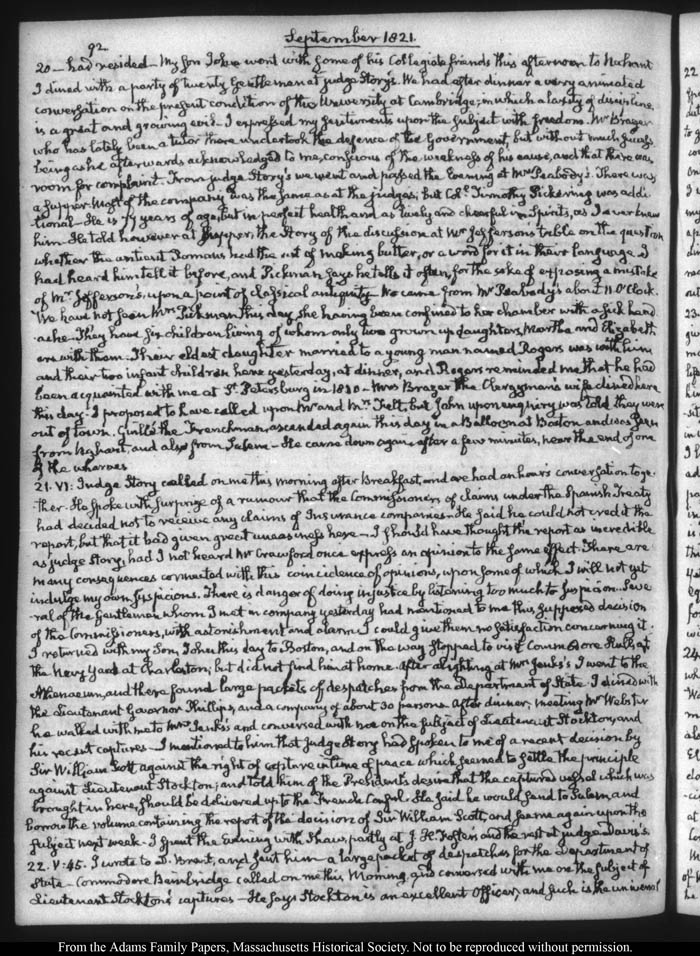 92
September 1821.
20 — had resided — My Son John went with some of his Collegiate friends this afternoon to Nahant
I dined with a party of twenty Gentlemen at judge Story's. We had after dinner a very animated
conversation on the present condition of the University at Cambridge; in which a laxity of discipline,
is a great and growing evil — I expressed my sentiments upon the subject with freedom. Mr Brazer
who has lately been a tutor there undertook the defence of the Government, but without much success
being as he afterwards acknowledged to me, conscious of the weakness of his cause, and that there was
room for complaint. From judge Story's we went and passed the Evening at Mr Peabody's. There was
a supper. Most of the company was the same as at the judge's; but Coll. Timothy Pickering was addi-
tional — He is 77 years of age, but in perfect health and as lively and cheerful in Spirits, as I ever knew
him. He told however at Supper, the Story of the discussion at Mr Jefferson's table on the question
whether the antient Romans had the art of making butter, or a word for it in their language. I
had heard him tell it before, and Pickman says he tells it often, for the sake of exposing a mistake
of Mr Jefferson's, upon a point of classical antiquity. We came from Mr Peabody's about 11 O'Clock.
We have not seen Mrs Pickman this day, she having been confined to her chamber with a sick head-
ache. They have six children living of whom only two grown up daughters, Martha and Elizabeth
are with them. Their eldest daughter married to a young man named Rogers was with him
and their two infant children here yesterday, at dinner, and Rogers reminded me that he had
been acquainted with me at St. Petersburg in 1810 — Mrs Brazer the Clergyman's wife dined here
this day. I proposed to have called upon Mr and Mrs Felt, but John upon enquiry was told they were
out of town. Guillé the Frenchman, ascended again this day in a Balloon at Boston and was seen
from Nahant, and also from Salem — He came down again after a few minutes, near the end of one
of the wharves
21. VI: Judge Story called on me this morning after breakfast, and we had an hour's conversation toge-
ther. He spoke with surprize of a rumour that the Commissioners of claims under the Spanish Treaty
had decided not to receive any claims of Insurance companies. He said he could not credit the
report, but that it had given great uneasiness here — I should have thought the report as incredible
as judge Story, had I not heard Mr Crawford once express an opinion to the same effect. There are
many consequences connected with this coincidence of opinions, upon some of which I will not yet
indulge my own suspicions. There is danger of doing injustice by listening too much to suspicion. Seve-
ral of the Gentlemen whom I met in company yesterday had mentioned to me this supposed decision
of the Commissioners, with astonishment and alarm. I could give them no satisfaction concerning it.
I returned with my Son, John this day to Boston, and on the way stopped to visit Commodore Hull at
the Navy Yard at Charleston; but did not find him at home. After alighting at Mrs Jenks's I went to the
Athenaeum, and there found large packets of despatches from the Department of State. I dined with
the Lieutenant Governor Phillips, and a company of about 30 persons. After dinner, meeting Mr Webster
he walked with me to Mrs Jenks's and conversed with me on the subject of Lieutenant Stockton, and
his recent captures — I mentioned to him that judge Story had spoken to me of a recent decision by
Sir William Scott against the right of capture in time of peace which seemed to settle the principle
against Lieutenant Stockton; and told him of the President's desire that the captured vessel which was
brought in here, should be delivered up to the French Consul. He said he would send to Salem and
borrow the volume containing the report of the decision of Sir William Scott, and see me again upon the
subject next week. I spent the Evening with Shaw, partly at J. H. Foster's and the rest at judge Davis's.
22. V:45. I wrote to D. Brent, and sent him a large packet of despatches for the Department of
State — Commodore Bainbridge called on me this Morning, and conversed with me on the subject of
Lieutenant Stockton's captures — He says Stockton is an excellent Officer, and such is the universal
From the Adams Family Papers, Massachusetts Historical Society. Not to be reproduced without permission.